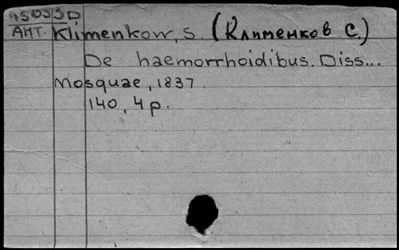 45033D
АНТ. Klimenkow, S. (Клименков С.)
De haemorrhoidibus. Diss...
Mosquae, 1837.
140, 4 p.